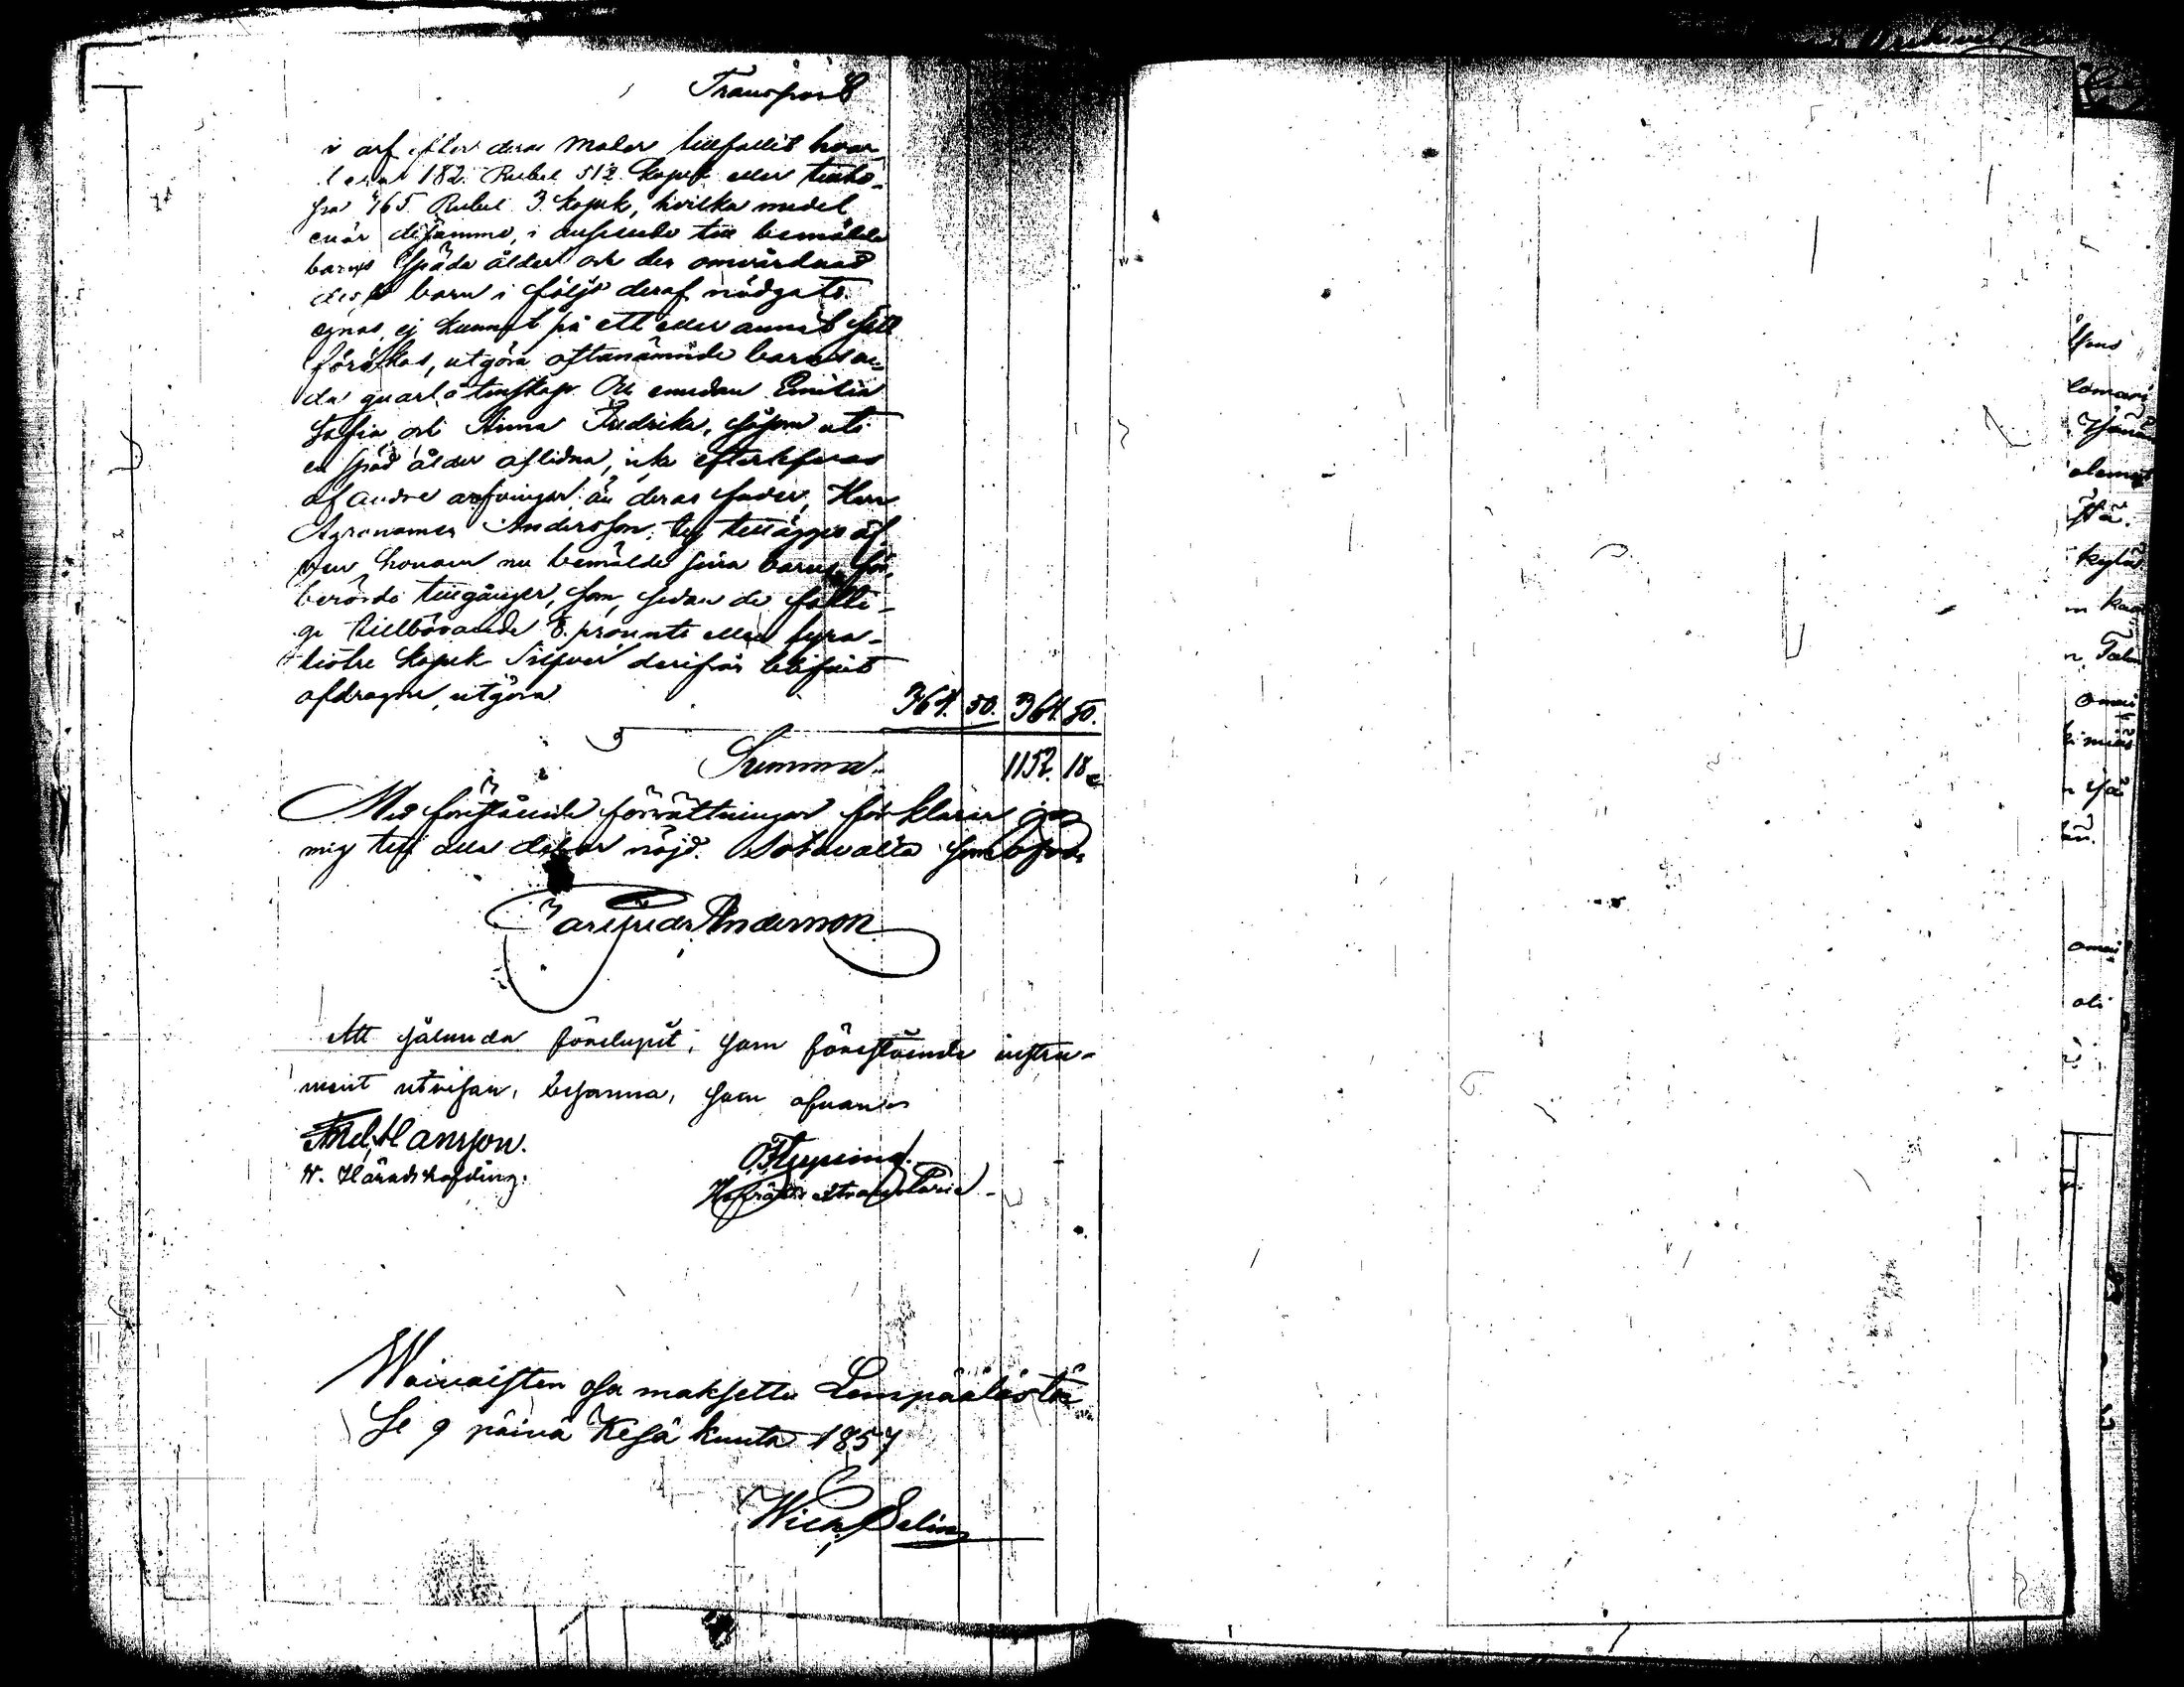 Transport
i arf efter deras Moder tillfallit hvar
182 Rubel 51½ kopek eller tillho-
pa 365 Rubel 3 kopek, hvilka medel
enär desamma, i anseende till bemälde
barns späda ålder och den omvårdnad
dessa barn i följd deraf nödgats
egnas, ej kunnat på ett eller annat sätt
förökas, utgöra oftanämnde barns
qvarlåtenskap. Och emedan Emilia
Sofia och Anna Fredrika, såsom uti
en späd ålder aflidna, icke efterlefvas
af andre arfvingar än deras fader, Herr
Agronomen Andersson, ty tillägges äf-
ven honom nu bemälde sina barns
berörde tillgångar, som, sedan de fatti-
ge tillkommande ⅛ procent eller fyra-
tiotre kopek Silfver derifrån blifvit
afdragne, utgöra 364. 50. 364. 50.
Summa 1152. 18
Med förestående förrättningar förklarar jag
mig till alla delar nöjd. Sotavalta som ofvan
Carl Fredr Andersson
Att sålunda förelupit, som förestående instru-
ment utvisar, besanna, som ofvan
Hansson.
V. Häradshöfding.
Hofrätts extra
Waivaisten osa maksettu Lempäälästä
Se 9 päivä Kesä kuuta 1857
Selin
lomari
kylä
omai
omai
oli